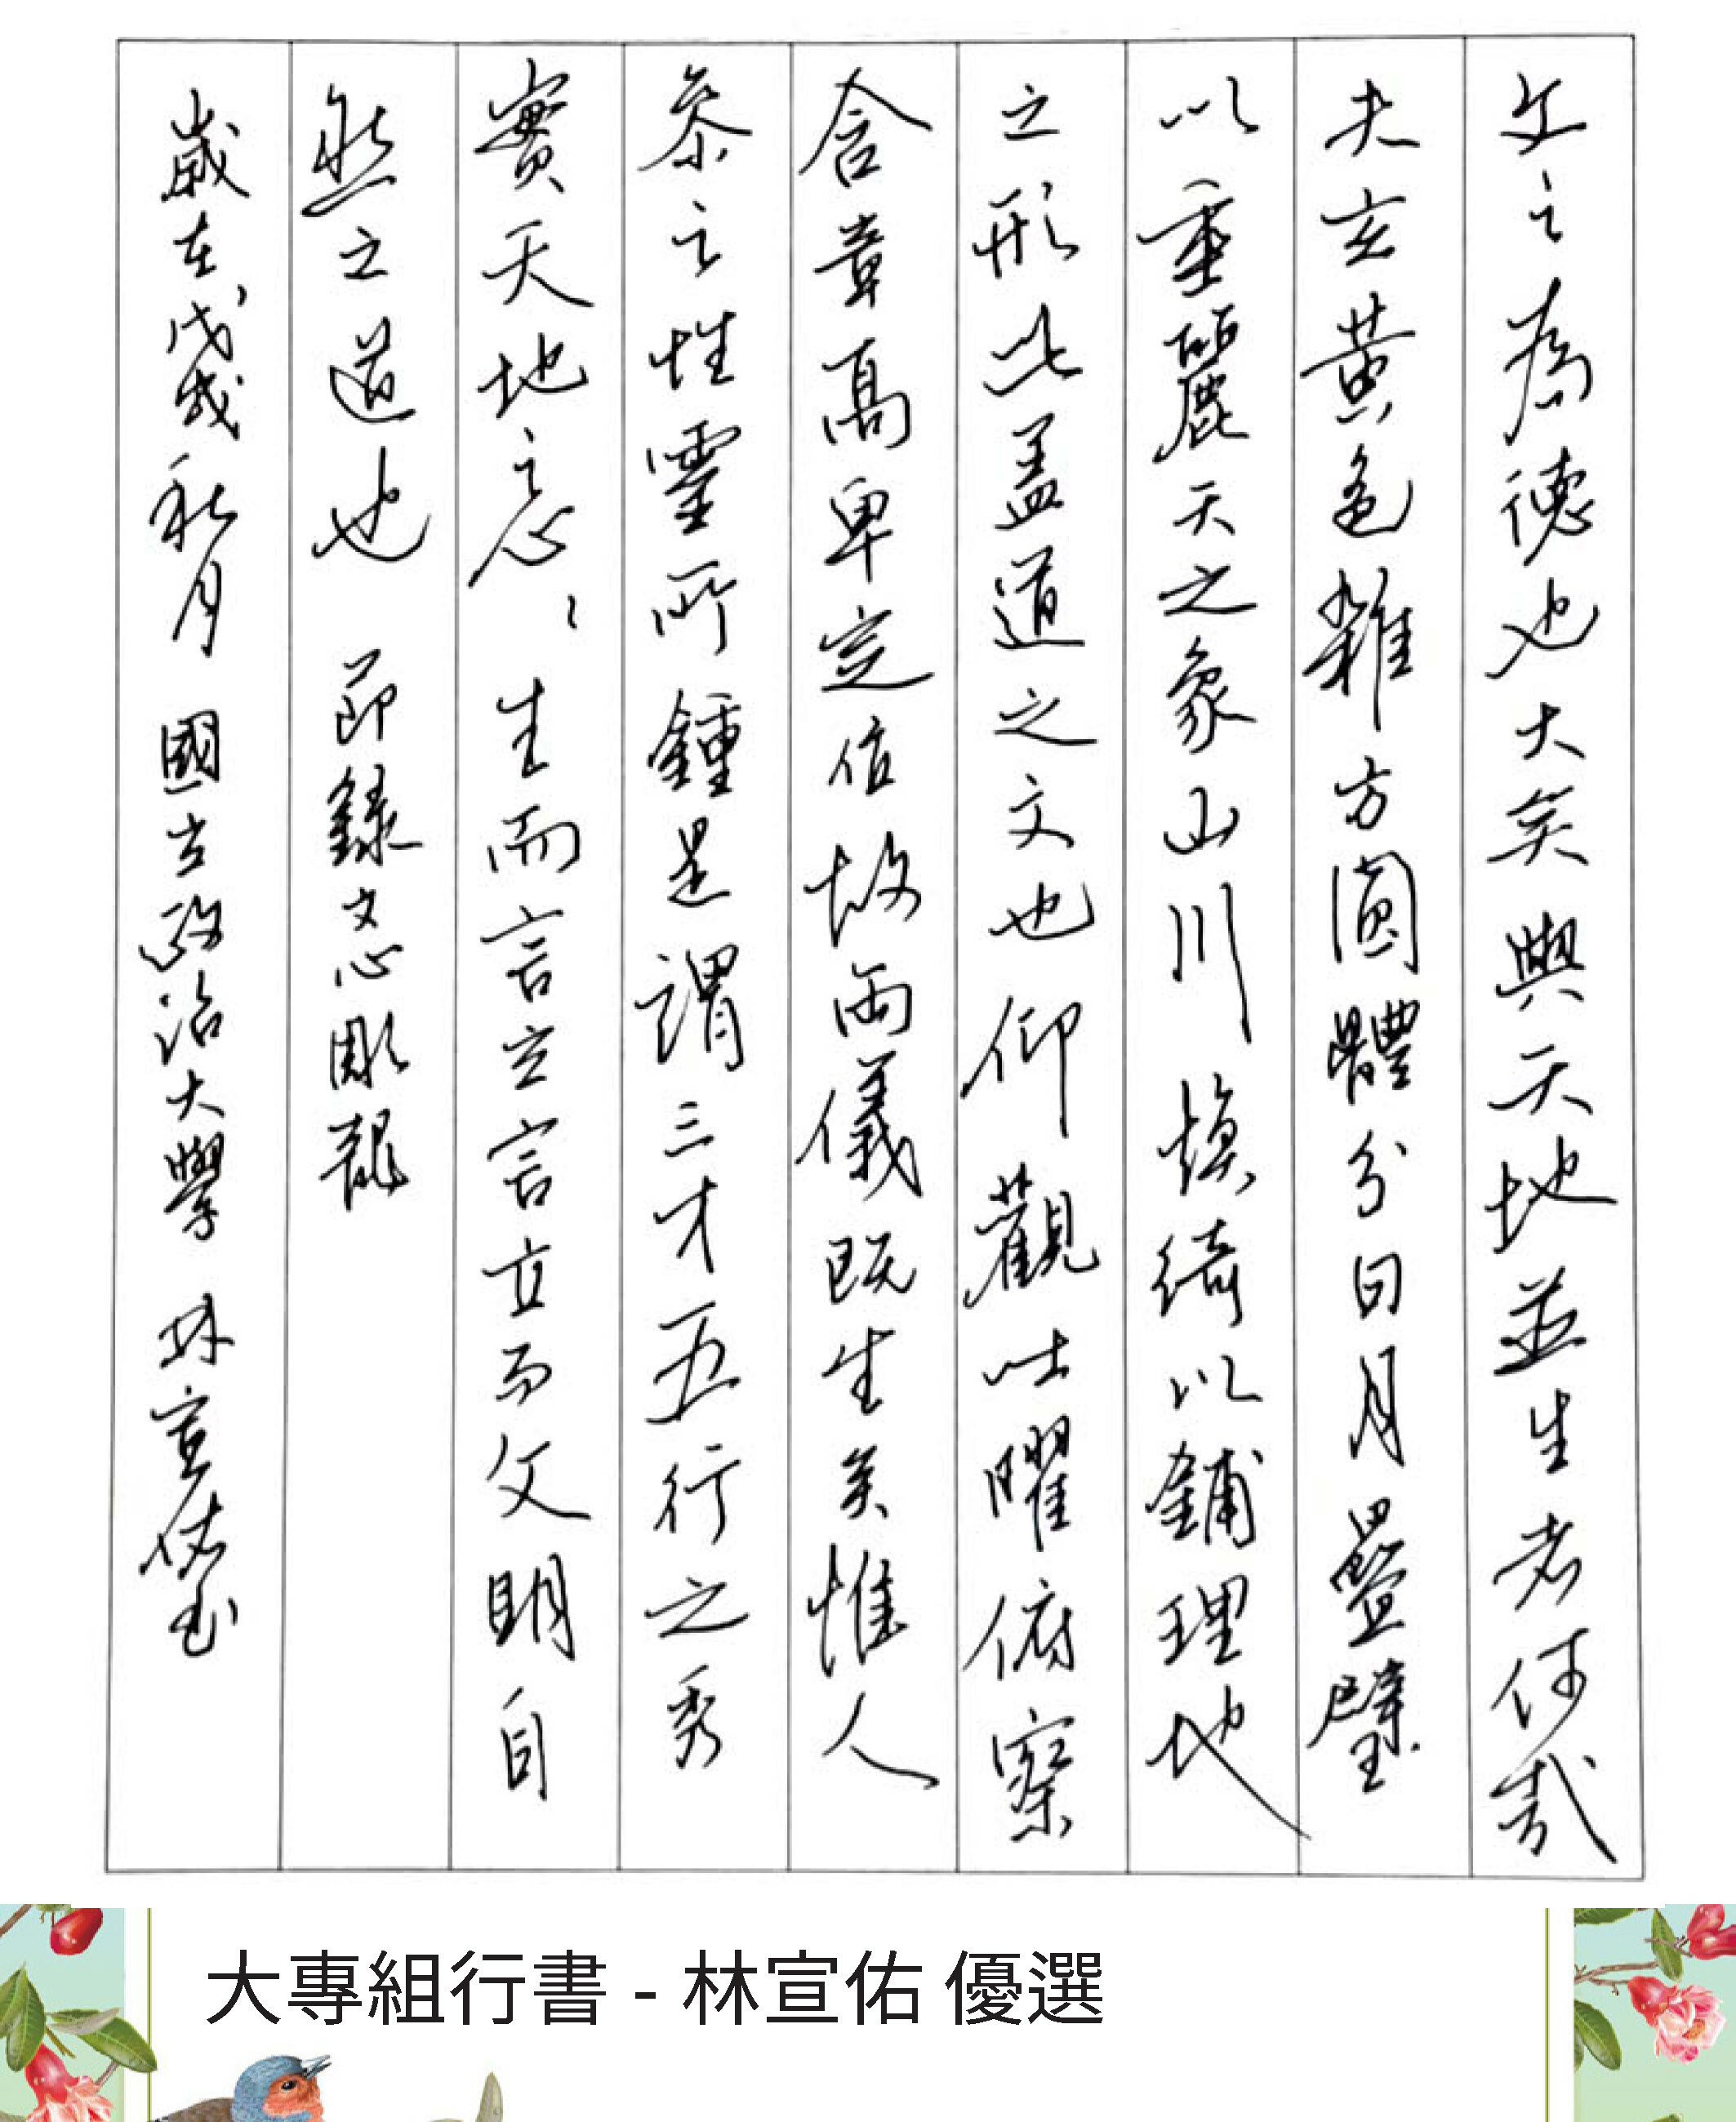 文之為德也大矣與天地並生者何哉
夫玄黃色雜方圓體分日月疊璧
以垂麗天之象山川煥綺以鋪理地
之形此蓋道之文也仰觀吐曜俯察
含章高卑定位故兩儀既生矣惟人
參之性靈所鍾是謂三才五行之秀
實天地之心心生而言立言立而文明自
然之道也 節錄文心雕龍
歲在戊戌秋月 國立政治大學 林宣佑書
大專組行書 - 林宣佑 優選